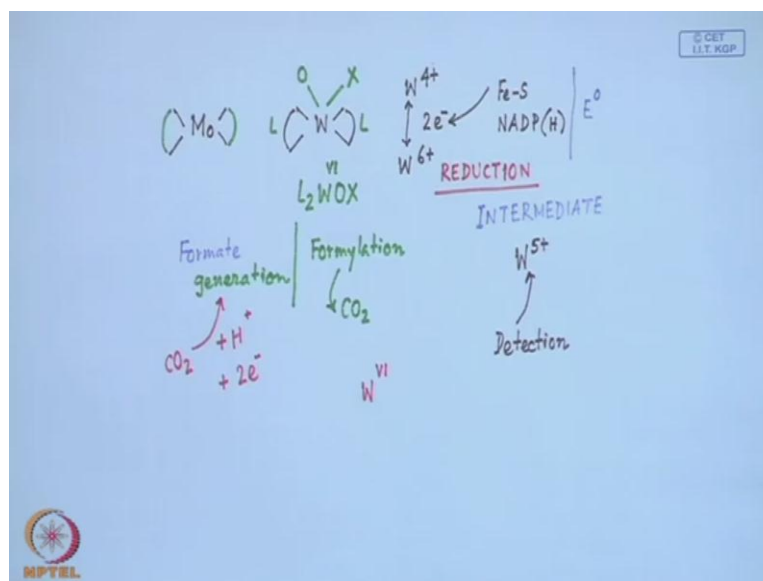 © CET
I.I.T. KGP
O X
( Mo )
L ( W ) L
VI
L₂WOX
W⁴⁺
2e⁻
W⁶⁺
Fe-S
NADP(H)
E⁰
REDUCTION
INTERMEDIATE
W⁵⁺
Detection
Formate
generation
CO₂
+ H⁺
+ 2e⁻
Formylation
CO₂
W^VI
NPTEL